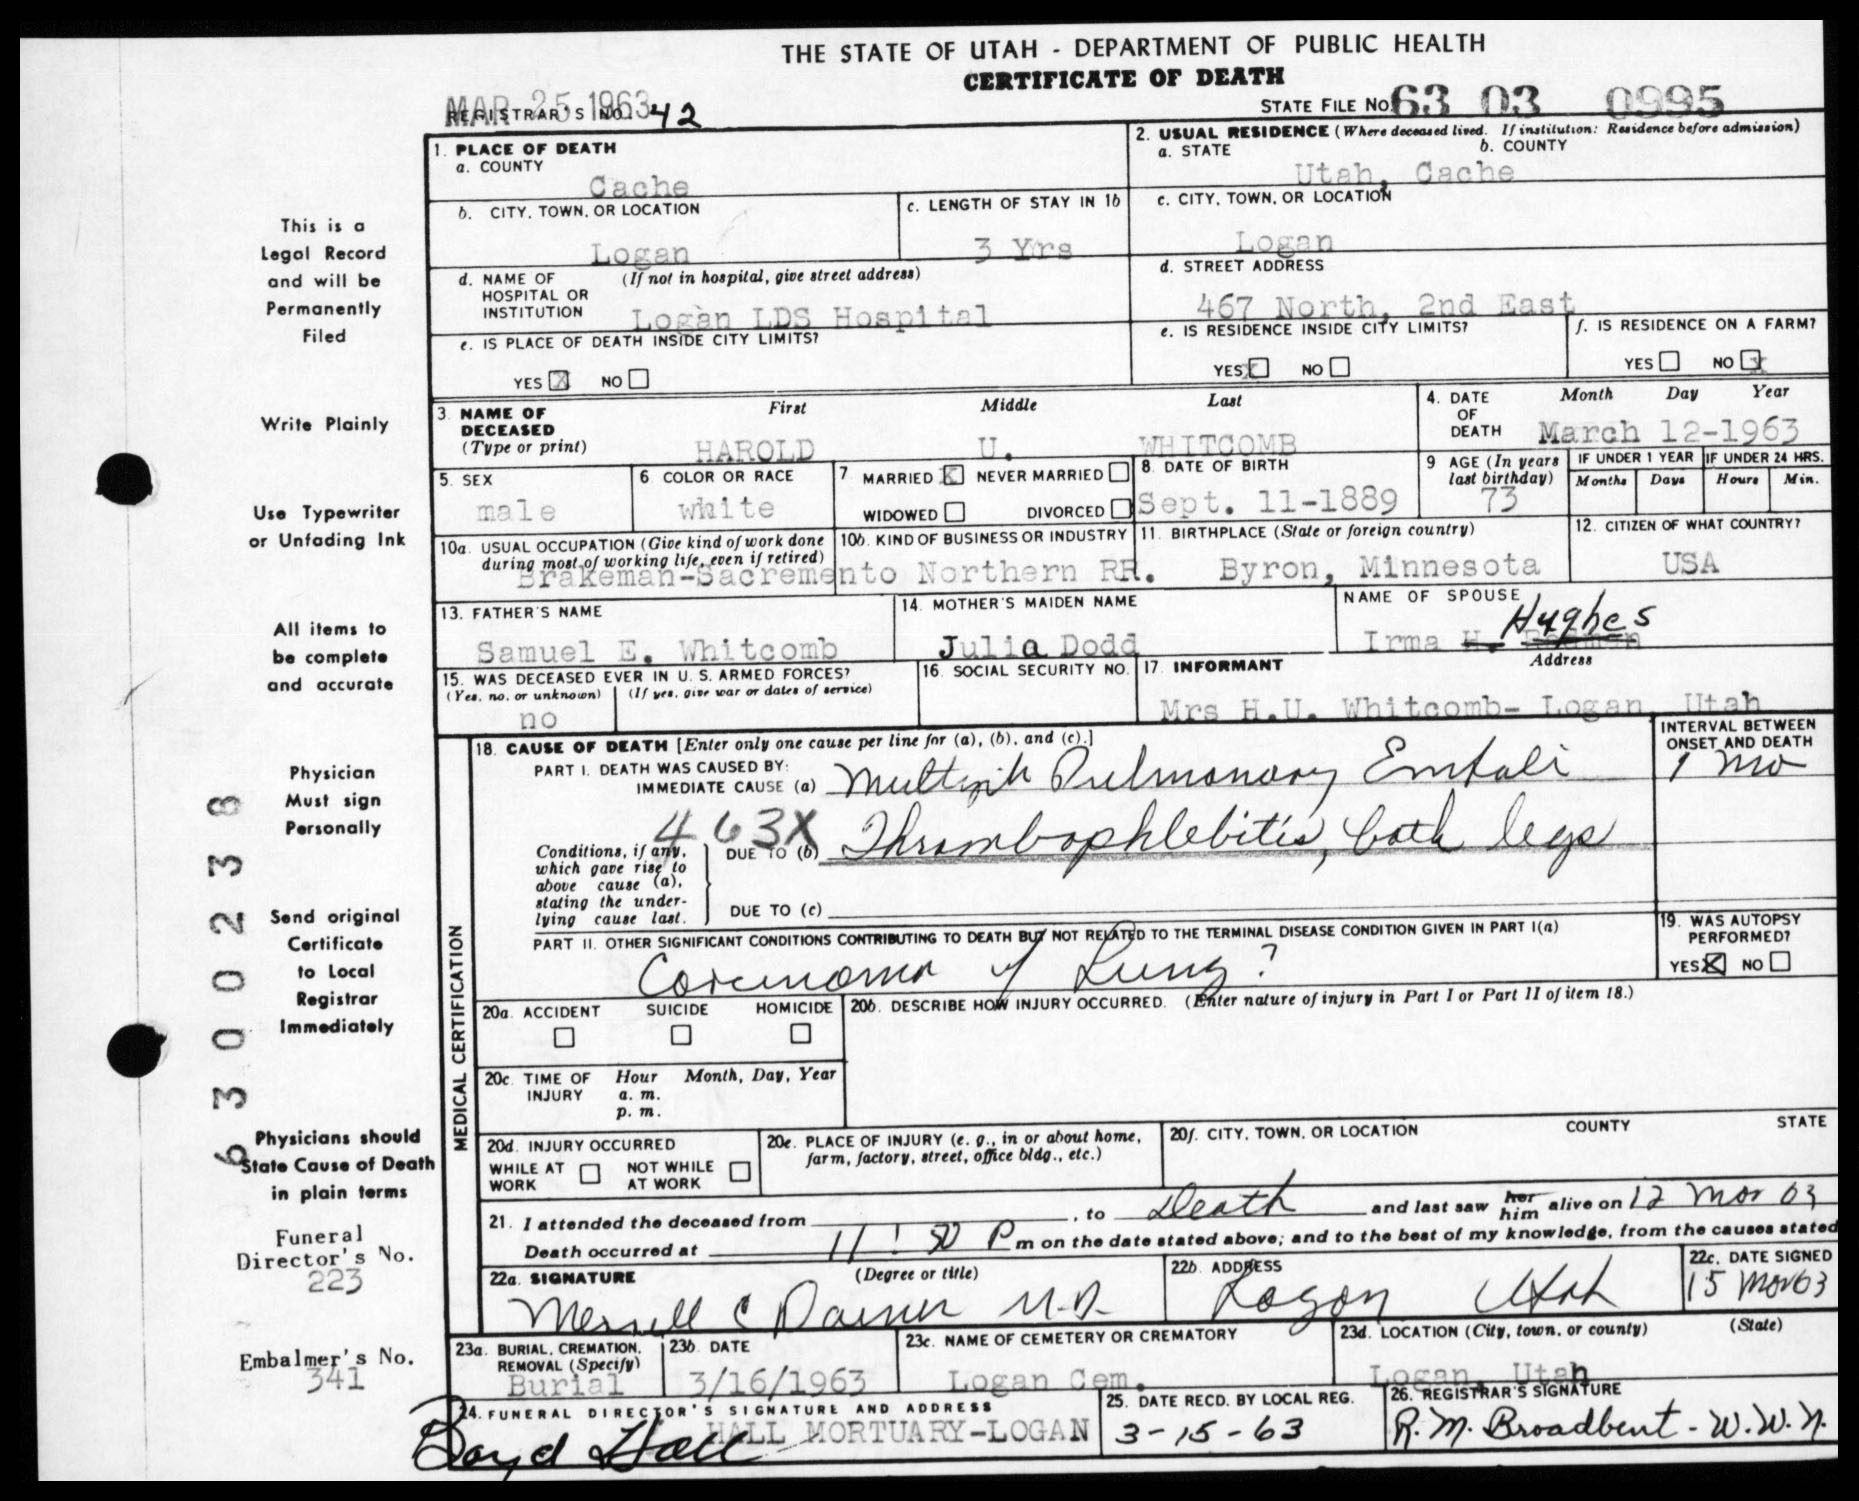 THE STATE OF UTAH - DEPARTMENT OF PUBLIC HEALTH
CERTIFICATE OF DEATH
MAR 25 1963
REGISTRAR'S NO. 42
STATE FILE NO. 63 03 0995
1. PLACE OF DEATH
a. COUNTY
Cache
2. USUAL RESIDENCE (Where deceased lived. If institution: Residence before admission)
a. STATE b. COUNTY
Utah, Cache
b. CITY, TOWN, OR LOCATION
Logan
c. LENGTH OF STAY IN 1b
3 Yrs
c. CITY, TOWN, OR LOCATION
Logan
d. NAME OF HOSPITAL OR INSTITUTION (If not in hospital, give street address)
Logan LDS Hospital
d. STREET ADDRESS
467 North, 2nd East
e. IS PLACE OF DEATH INSIDE CITY LIMITS?
YES X NO
e. IS RESIDENCE INSIDE CITY LIMITS?
YES X NO
f. IS RESIDENCE ON A FARM?
YES NO X
3. NAME OF DECEASED (Type or print)
First Middle Last
HAROLD U. WHITCOMB
4. DATE OF DEATH Month Day Year
March 12-1963
5. SEX
male
6. COLOR OR RACE
white
7 MARRIED X NEVER MARRIED
WIDOWED DIVORCED
8. DATE OF BIRTH
Sept. 11-1889
9 AGE (In years last birthday)
73
IF UNDER 1 YEAR IF UNDER 24 HRS.
Months Days Hours Min.
10a. USUAL OCCUPATION (Give kind of work done during most of working life, even if retired)
10b. KIND OF BUSINESS OR INDUSTRY
Brakeman-Sacremento Northern RR.
11. BIRTHPLACE (State or foreign country)
Byron, Minnesota
12. CITIZEN OF WHAT COUNTRY?
USA
13. FATHER'S NAME
Samuel E. Whitcomb
14. MOTHER'S MAIDEN NAME
Julia Dodd
NAME OF SPOUSE
Irma H. Hughes
15. WAS DECEASED EVER IN U. S. ARMED FORCES?
(Yes, no, or unknown) (If yes, give war or dates of service)
no
16. SOCIAL SECURITY NO.
17. INFORMANT Address
Mrs H.U. Whitcomb- Logan, Utah
MEDICAL CERTIFICATION
18. CAUSE OF DEATH [Enter only one cause per line for (a), (b), and (c).]
INTERVAL BETWEEN ONSET AND DEATH
PART I. DEATH WAS CAUSED BY:
IMMEDIATE CAUSE (a) Multiple Pulmonary Emboli
1 mo
463X
Conditions, if any, which gave rise to above cause (a), stating the underlying cause last.
DUE TO (b) Thrombophlebitis, both legs
DUE TO (c)
PART II. OTHER SIGNIFICANT CONDITIONS CONTRIBUTING TO DEATH BUT NOT RELATED TO THE TERMINAL DISEASE CONDITION GIVEN IN PART I(a)
Carcinoma of Lung?
19. WAS AUTOPSY PERFORMED?
YES X NO
20a. ACCIDENT SUICIDE HOMICIDE
20b. DESCRIBE HOW INJURY OCCURRED. (Enter nature of injury in Part I or Part II of item 18.)
20c. TIME OF INJURY Hour Month, Day, Year
a. m.
p. m.
20d. INJURY OCCURRED
WHILE AT WORK NOT WHILE AT WORK
20e. PLACE OF INJURY (e. g., in or about home, farm, factory, street, office bldg., etc.)
20f. CITY, TOWN, OR LOCATION COUNTY STATE
21. I attended the deceased from , to Death and last saw her him alive on 12 Mar 63
Death occurred at 11:50 P m on the date stated above; and to the best of my knowledge, from the causes stated
22a. SIGNATURE (Degree or title)
Merrill C Daines M.D.
22b. ADDRESS
Logan Utah
22c. DATE SIGNED
15 Mar 63
23a. BURIAL, CREMATION, REMOVAL (Specify)
Burial
23b. DATE
3/16/1963
23c. NAME OF CEMETERY OR CREMATORY
Logan Cem.
23d. LOCATION (City, town, or county) (State)
Logan, Utah
24. FUNERAL DIRECTOR'S SIGNATURE AND ADDRESS
Boyd Hall HALL MORTUARY-LOGAN
25. DATE RECD. BY LOCAL REG.
3-15-63
26. REGISTRAR'S SIGNATURE
R.M. Broadbent - W.W.N.
This is a
Legal Record
and will be
Permanently
Filed
Write Plainly
Use Typewriter
or Unfading Ink
All items to
be complete
and accurate
Physician
Must sign
Personally
Send original
Certificate
to Local
Registrar
Immediately
Physicians should
State Cause of Death
in plain terms
Funeral
Director's No.
223
Embalmer's No.
341
6300238